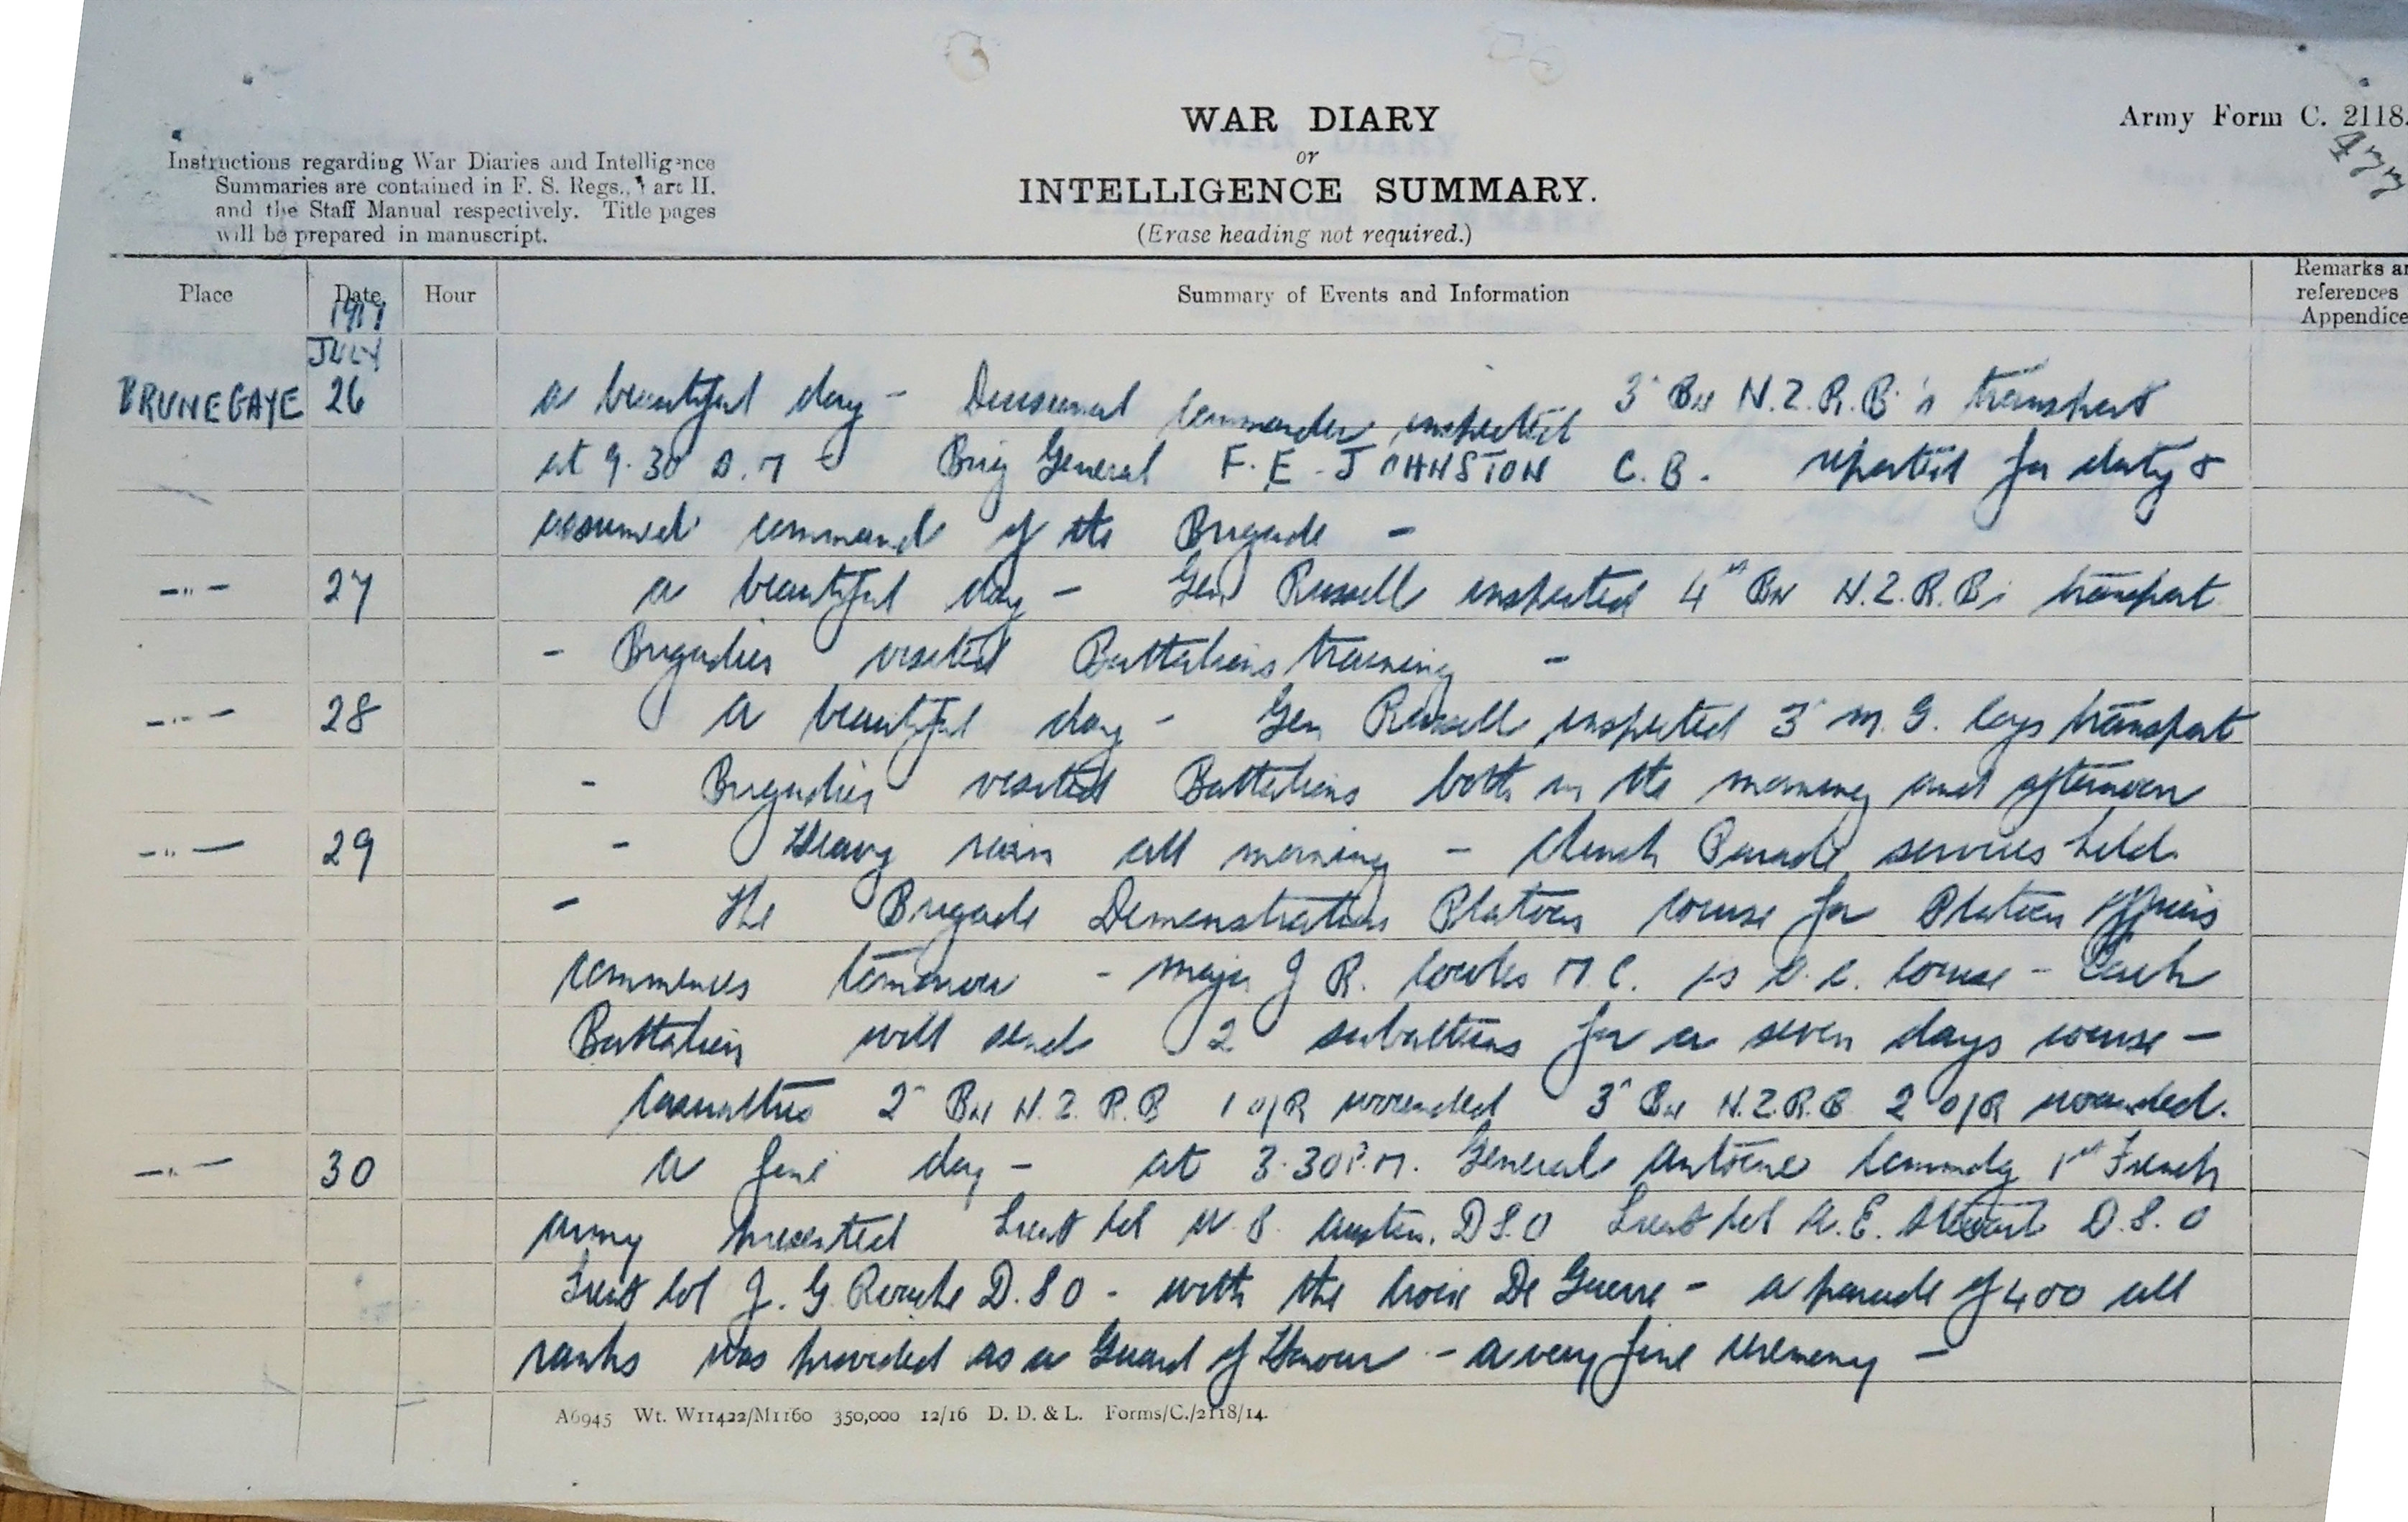 WAR DIARY
or
INTELLIGENCE SUMMARY.
(Erase heading not required.)
Army Form C. 2118.
477
Instructions regarding War Diaries and Intelligence
Summaries are contained in F. S. Regs., Part II.
and the Staff Manual respectively. Title pages
will be prepared in manuscript.
Place Date Hour Summary of Events and Information
Remarks an
references
Appendice
1917
JULY
BRUNEGAYE 26 a beautiful day - Divisional Commander inspected 3rd Bn N.Z.R.B's transport
at 9.30 A.M - Brig General F. E. JOHNSTON C.B. reported for duty &
assumed command of the Brigade -
-"- 27 a beautiful day - Gen Russell inspected 4th Bn N.Z.R.B's transport
- Brigadier visited Battalions training -
-"- 28 a beautiful day - Gen Russell inspected 3 M.G. Coys transport
- Brigadier visited Battalions both in the morning and afternoon
-"- 29 - Heavy rain all morning - Church Parade services held
- The Brigade Demonstration Platoon course for Platoon officers
commences tomorrow - Major J R. Cowles M.C. is O.C. course - Each
Battalion will send 2 subalterns for a seven days course -
Casualties 2 Bn N.Z.R.B 1 o/R wounded 3 Bn N.Z.R.B 2 o/R wounded.
-"- 30 a fine day - at 3.30 P.M. General Antoine Commdg 1st French
army presented Lieut Col W. S. Austin. D.S.O Lieut Col A. E. Stewart D.S.O
Lieut Col J. G. Roache D.S.O - with the Croix De Guerre - a parade of 400 all
ranks was provided as a Guard of Honour - a very fine ceremony -
A6945 Wt. W11422/M1160 350,000 12/16 D. D. & L. Forms/C./2118/14.